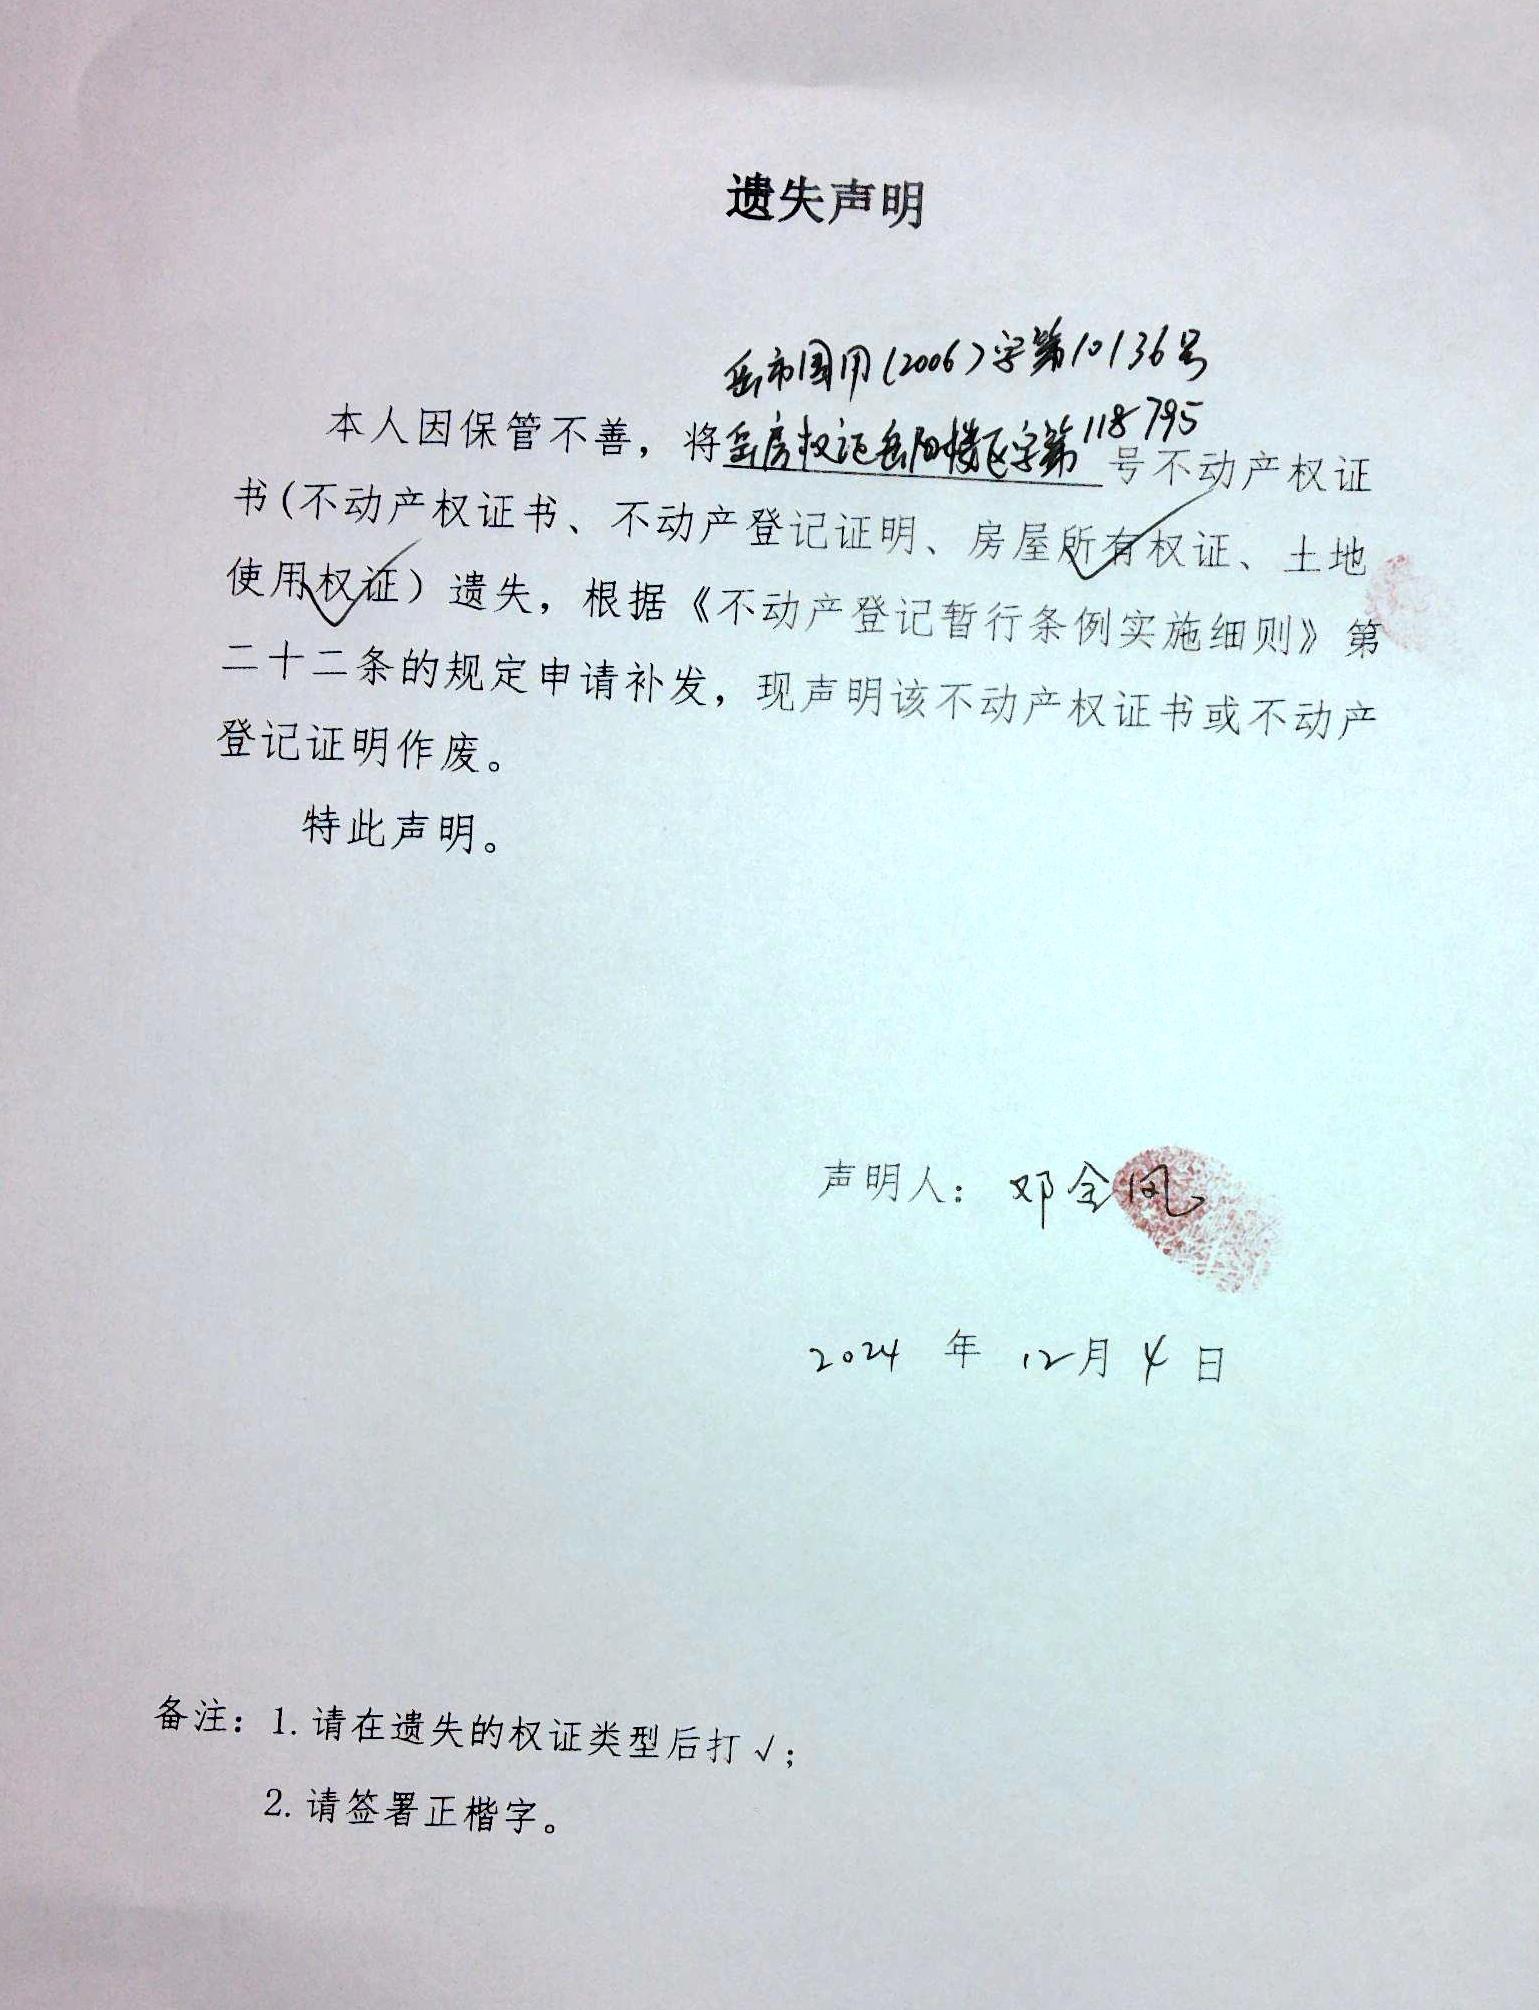 遗失声明
岳市国用(2006)字第10136号
本人因保管不善，将岳房权证岳阳楼区字第118795号不动产权证
书(不动产权证书、不动产登记证明、房屋所有权证、土地
使用权证）遗失，根据《不动产登记暂行条例实施细则》第
二十二条的规定申请补发，现声明该不动产权证书或不动产
登记证明作废。
特此声明。
声明人：邓全凤
2024 年 12月 4 日
备注：1.请在遗失的权证类型后打√；
2.请签署正楷字。